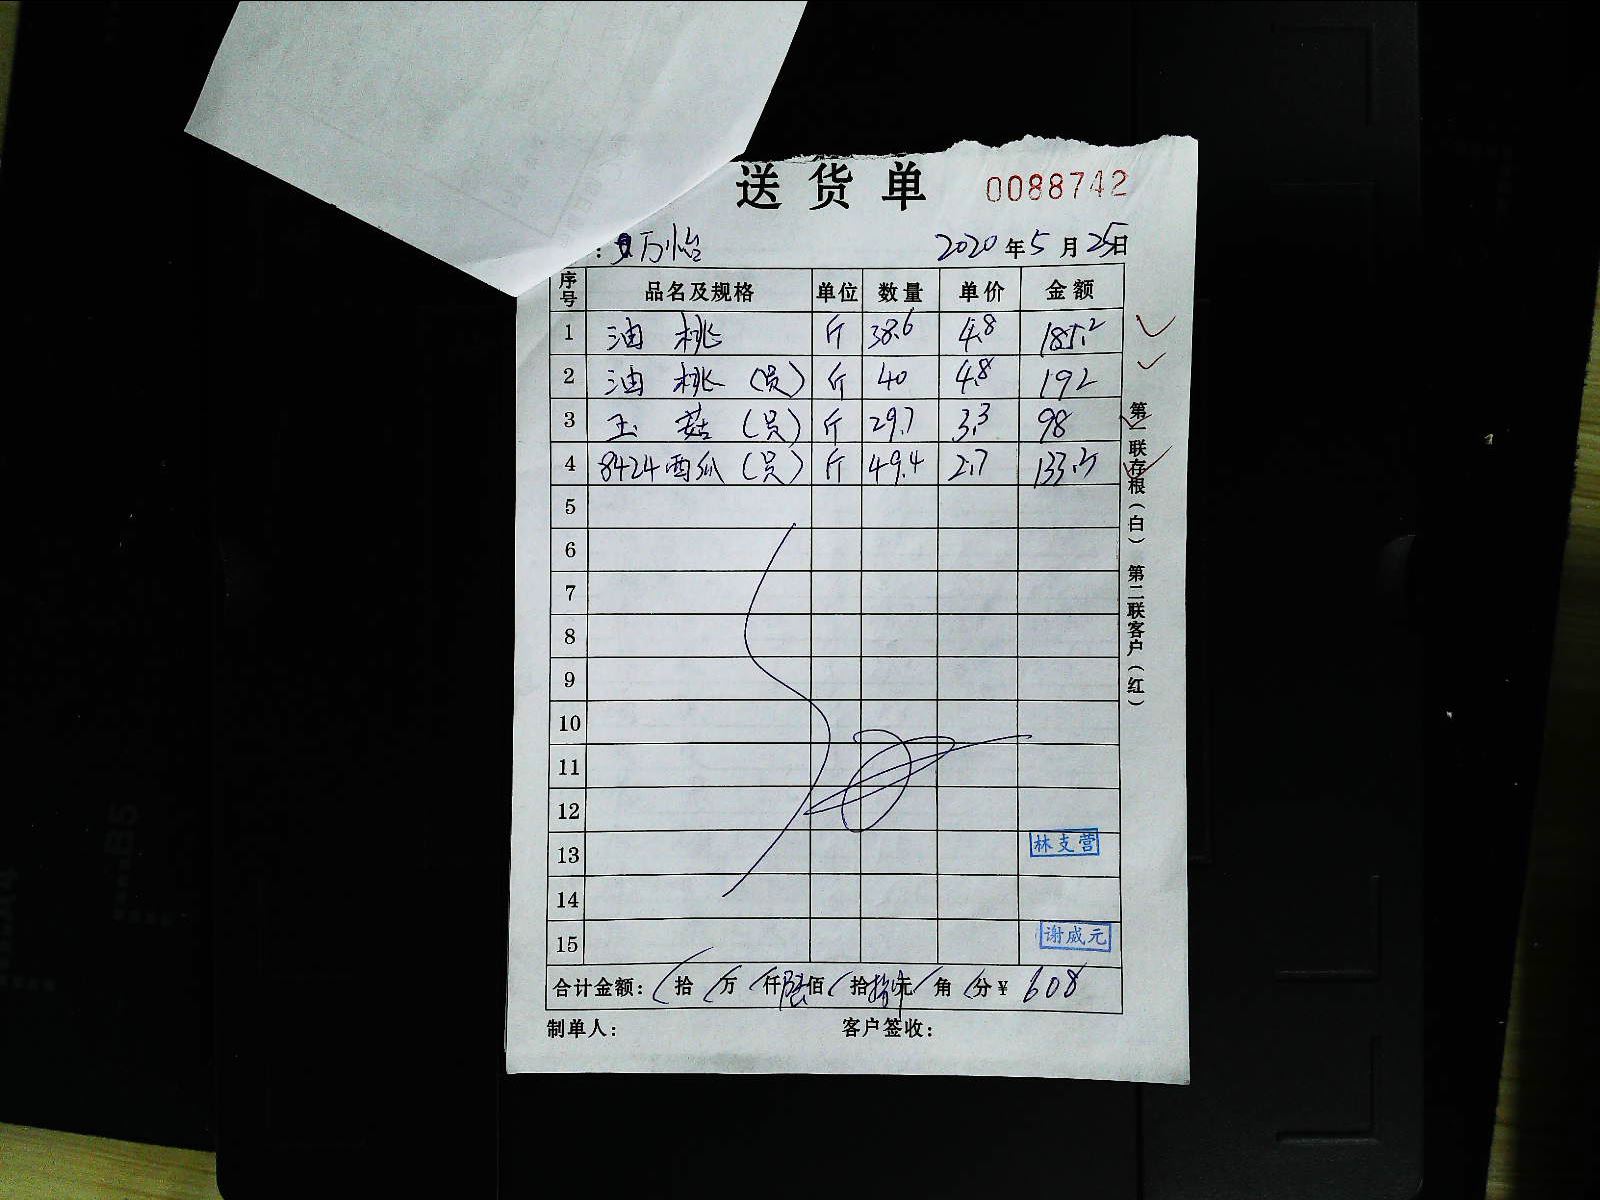 送货单 0088742
：万怡 2020年5月25日
序号 品名及规格 单位 数量 单价 金额
1 油桃 斤 38.6 4.8 185.2
2 油桃（员） 斤 40 4.8 192
3 玉菇（员） 斤 29.7 3.3 98
4 8424西瓜（员） 斤 49.4 2.7 133.3
5
6
7
8
9
10
11
12
13 林支营
14
15 谢威元
合计金额： 拾 万 仟 陆佰 拾 捌元 角 分 ¥ 608
制单人： 客户签收：
第一联存根（白） 第二联客户（红）
B5
A4